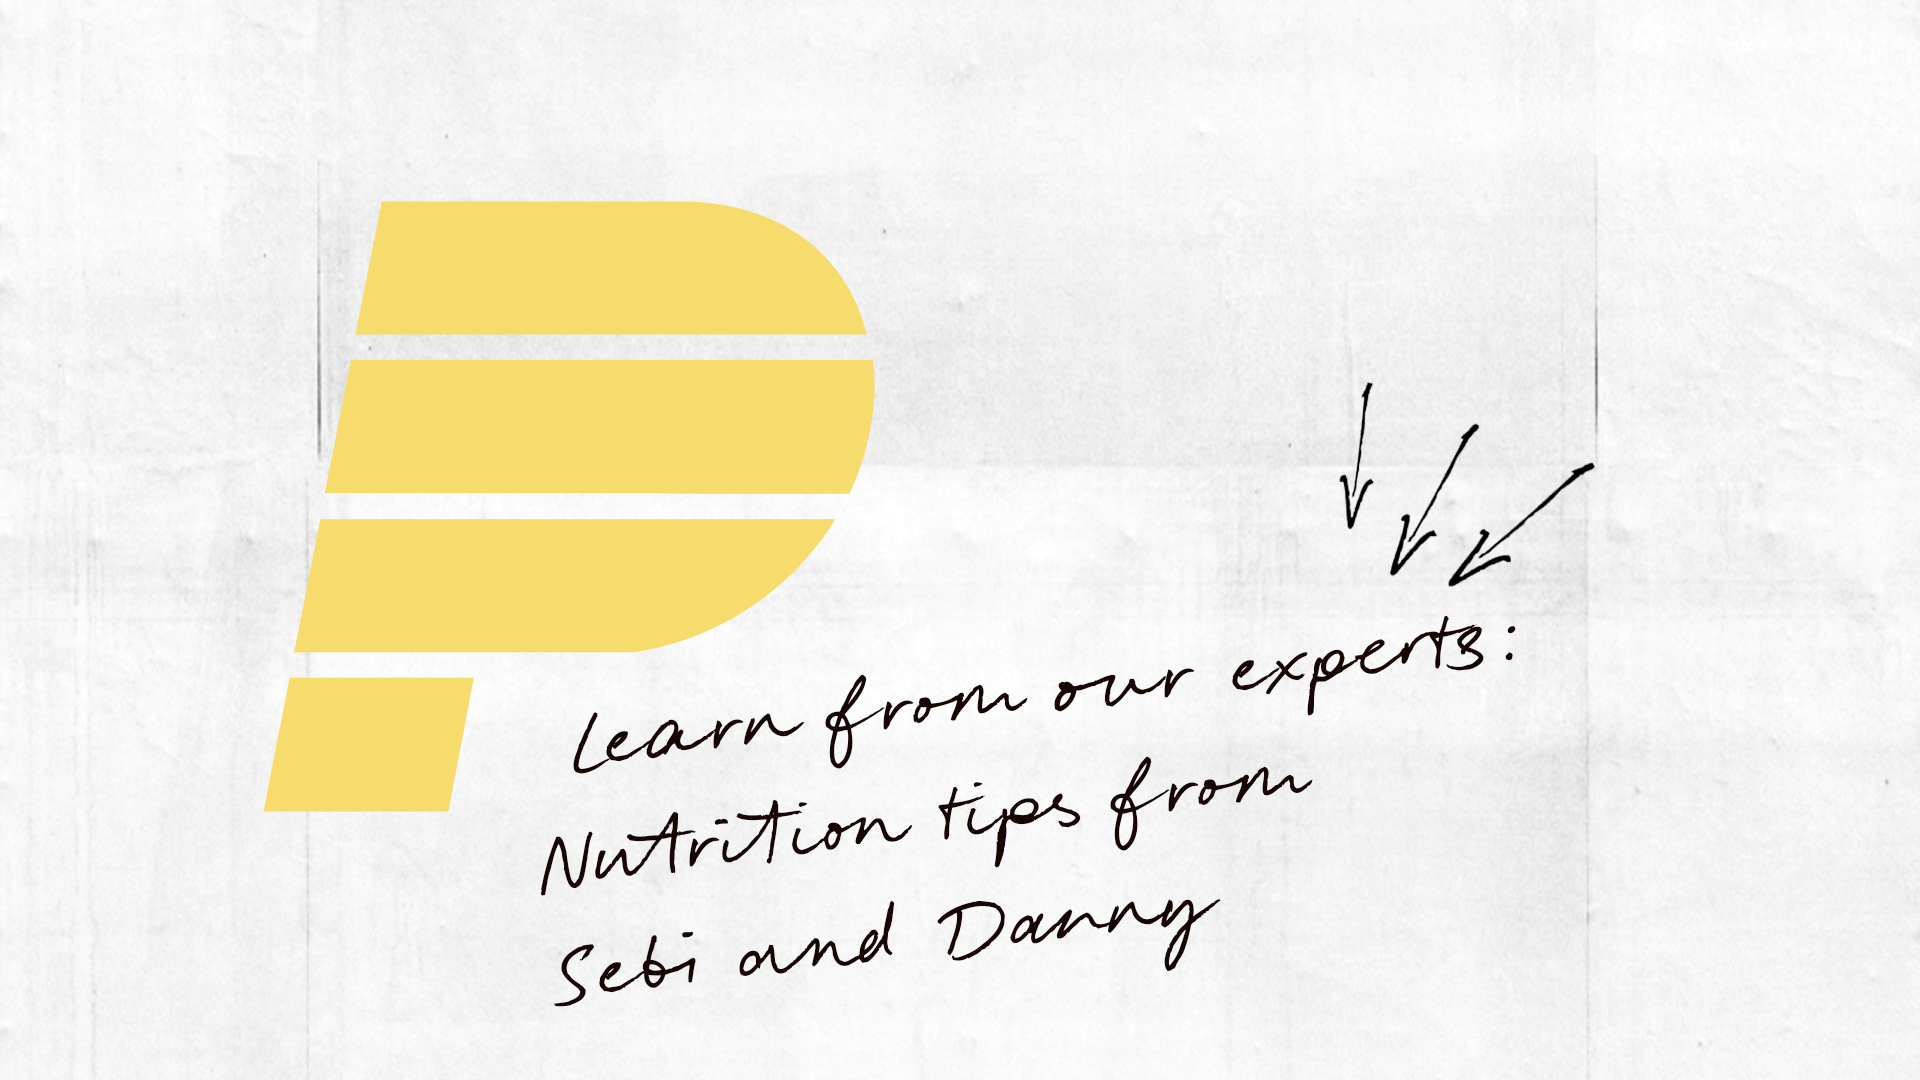 Learn from our experts:
Nutrition tips from
Sebi and Danny